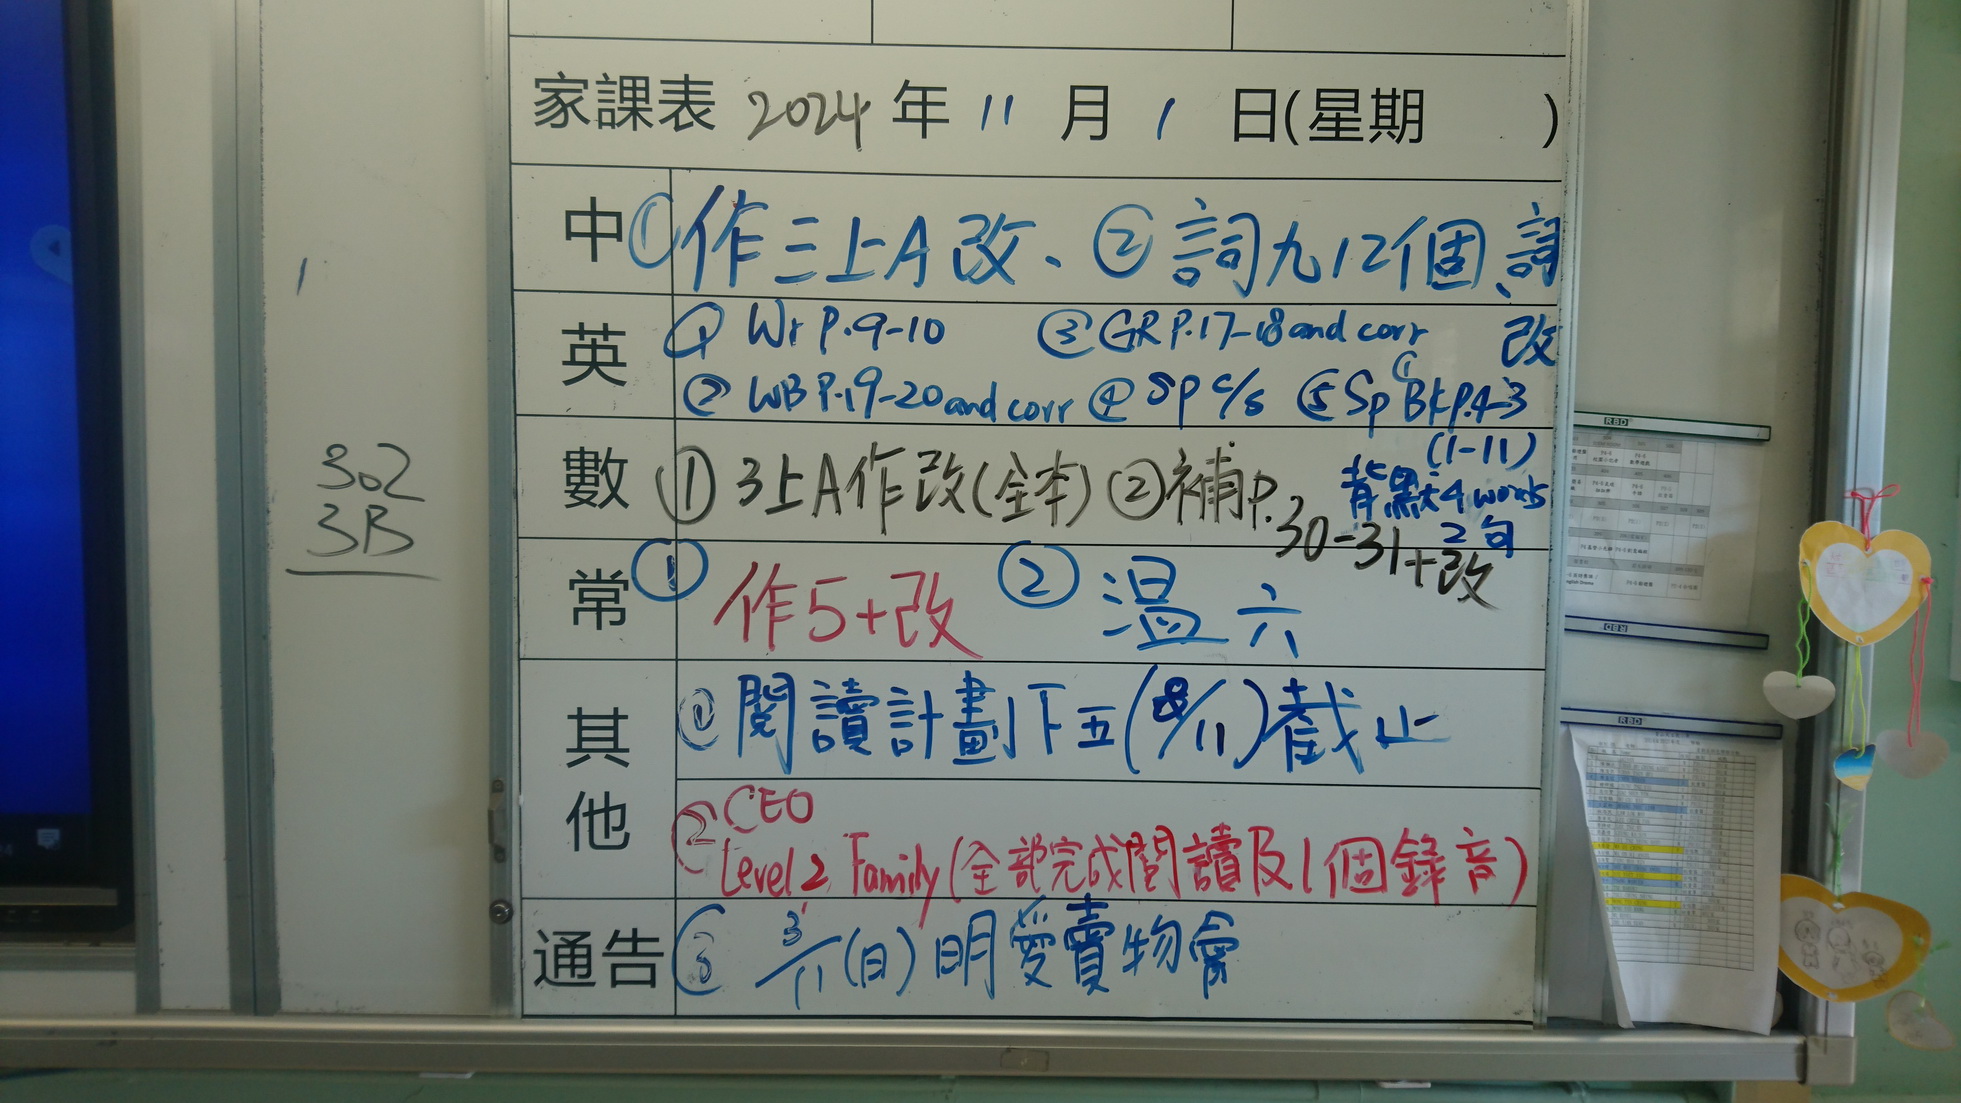 家課表 2024 年 11 月 1 日(星期 )
中 ① 作三上A改、② 詞九12個、詞改
英 ① Wr P.9-10 ③ GR P.17-18 and corr
② WB P.19-20 and corr ④ Sp c/s ⑤ Sp Bk P.4-3
(1-11)
背默 4 words
2句
數 ① 3上A作改(全本) ② 補P.30-31+改
常 ① 作5+改 ② 溫六
其他 ① 閱讀計劃下五(8/11)截止
② CEO
Level 2 Family (全部完成閱讀及1個錄音)
通告 ③ 3/11 (日) 明愛賣物會
302
3B
RBD
RBD
RBD